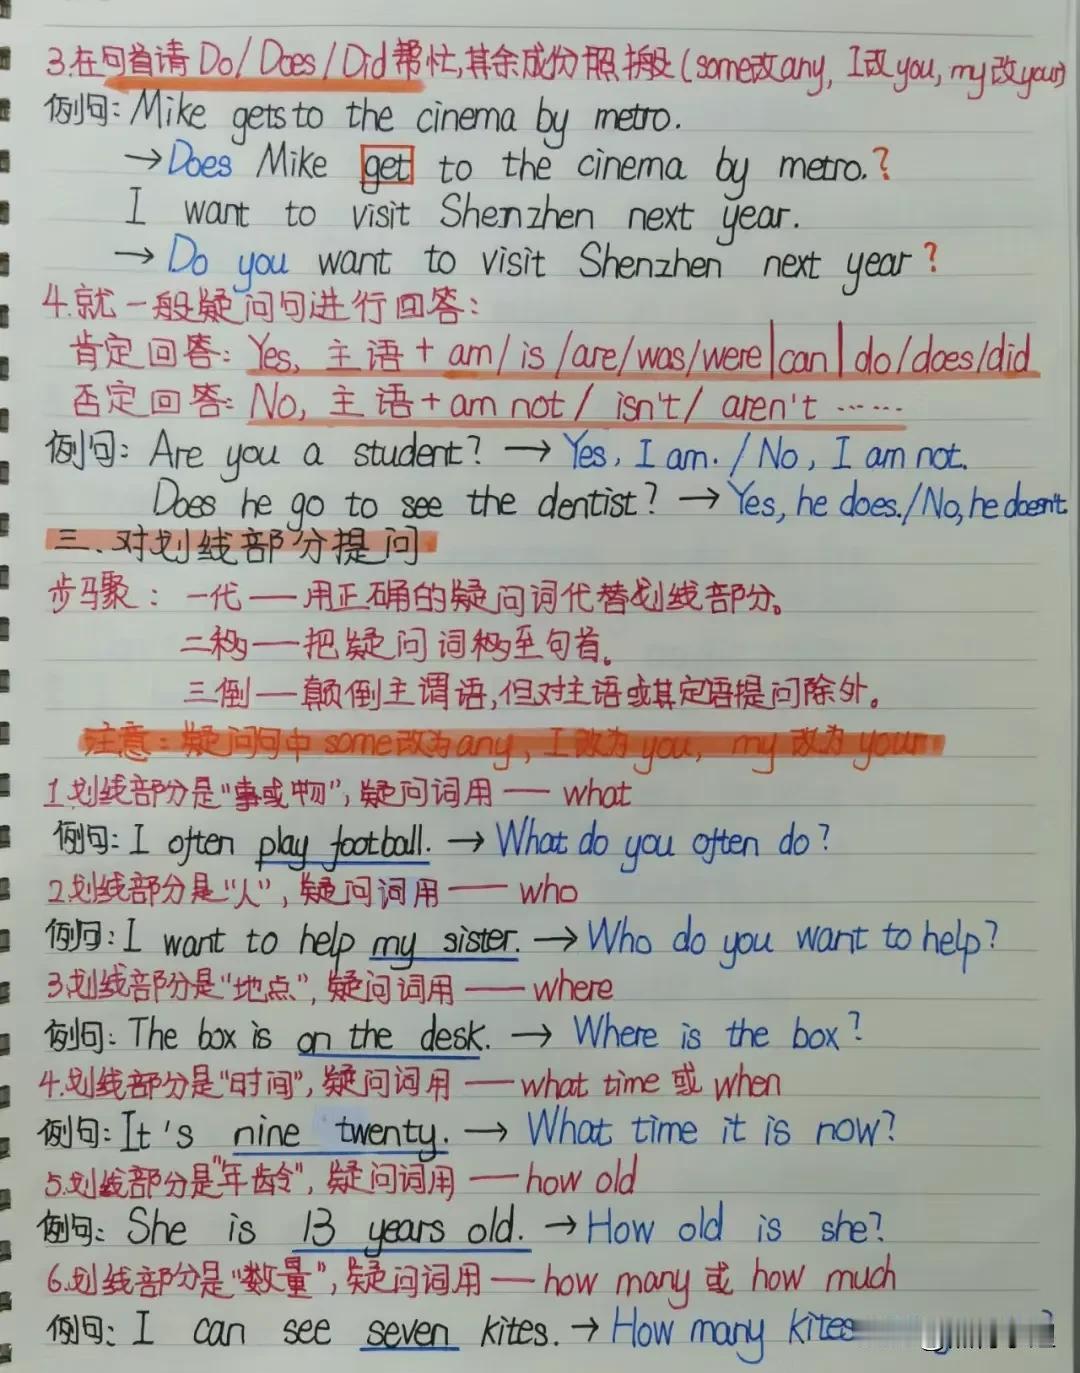 3.在句首请Do/Does/Did帮忙,其余成份照搬(some改any, I改you, my改your)
例句: Mike gets to the cinema by metro.
→Does Mike get to the cinema by metro.?
I want to visit Shenzhen next year.
→Do you want to visit Shenzhen next year?
4.就一般疑问句进行回答:
肯定回答: Yes, 主语+am/is/are/was/were|can|do/does/did
否定回答: No, 主语+am not/ isn't/ aren't ……
例句: Are you a student? → Yes, I am. / No, I am not.
Does he go to see the dentist? → Yes, he does./No, he doesn't.
三.对划线部分提问
步骤: 一代——用正确的疑问词代替划线部分。
二移——把疑问词移至句首。
三倒——颠倒主谓语,但对主语或其定语提问除外。
注意:疑问句中some改为any, I改为you, my改为your
1.划线部分是"事或物",疑问词用——what
例句: I often play football. → What do you often do?
2.划线部分是"人",疑问词用——who
例句: I want to help my sister. → Who do you want to help?
3.划线部分是"地点",疑问词用——where
例句: The box is on the desk. → Where is the box?
4.划线部分是"时间",疑问词用——what time 或 when
例句: It's nine twenty. → What time it is now?
5.划线部分是"年龄",疑问词用——how old
例句: She is 13 years old. → How old is she?
6.划线部分是"数量",疑问词用——how many 或 how much
例句: I can see seven kites. → How many kites